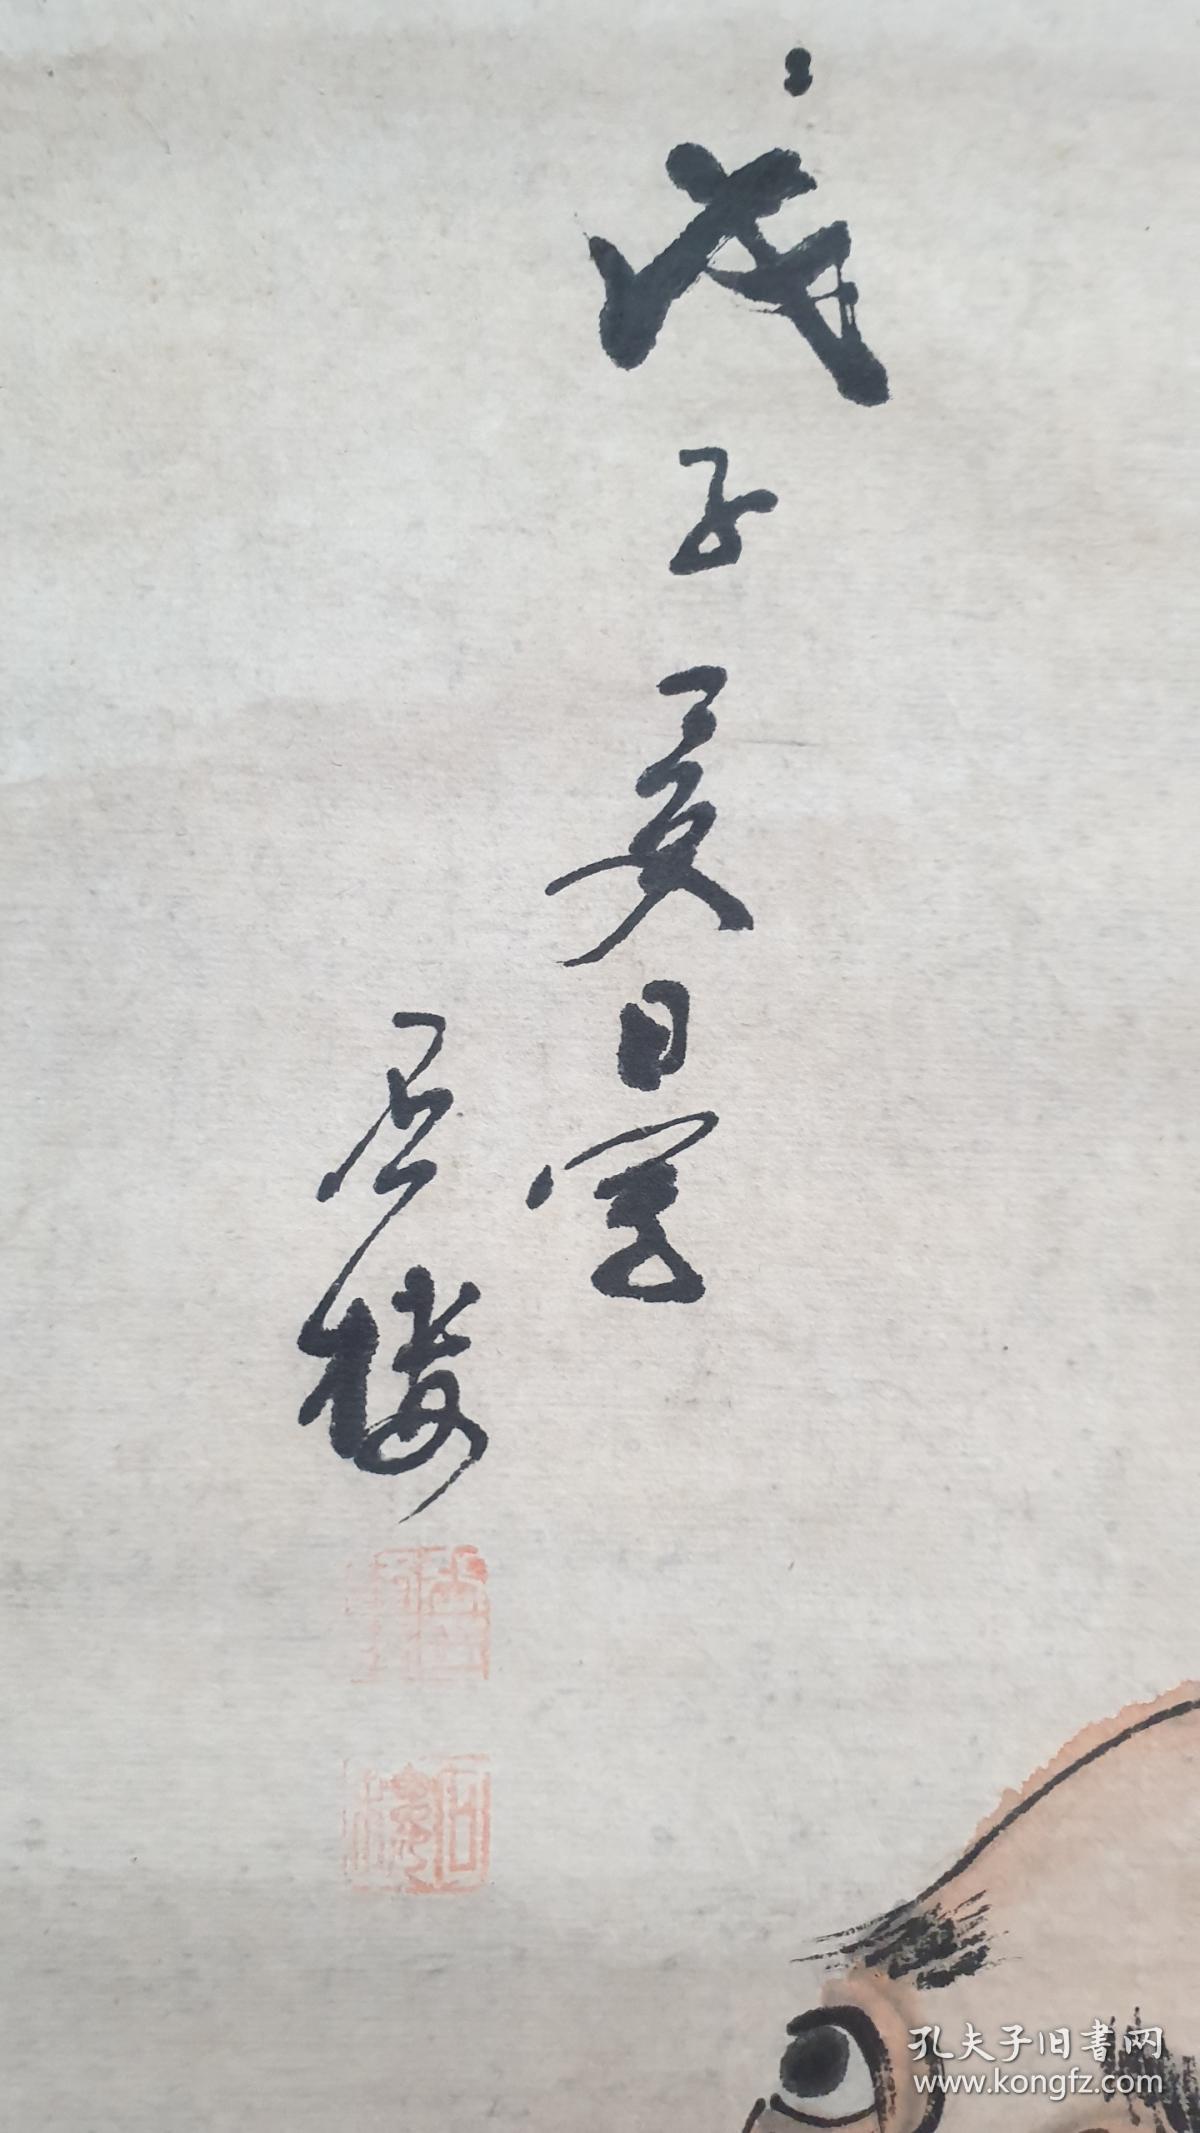 戊子夏日写
石楼
石楼
孔夫子旧書网
www.kongfz.com